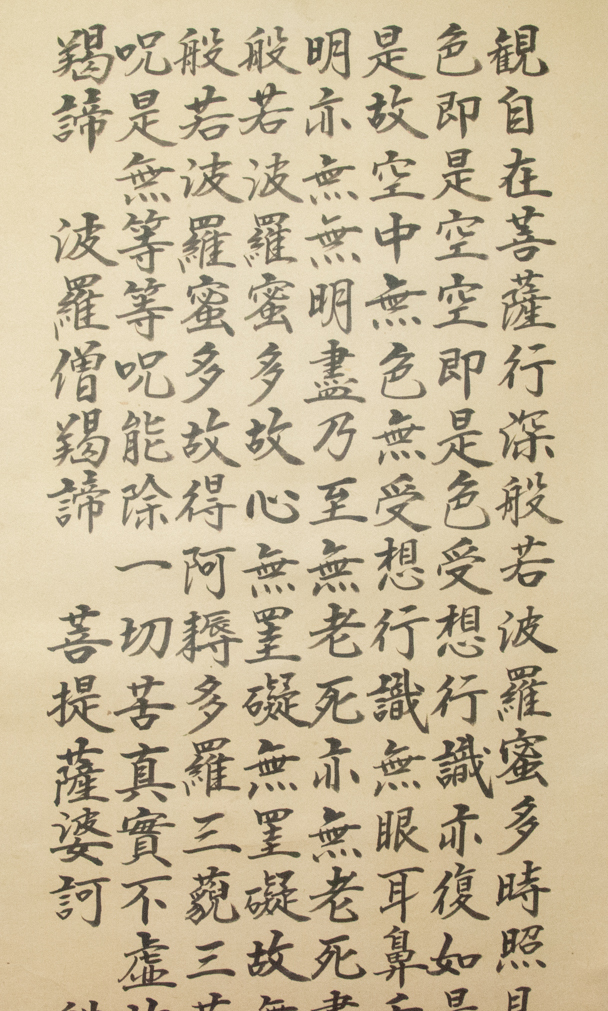 観自在菩薩行深般若波羅蜜多時照見
色即是空空即是色受想行識亦復如是
是故空中無色無受想行識無眼耳鼻舌
明亦無無明盡乃至無老死亦無老死盡
般若波羅蜜多故心無罣礙無罣礙故無
般若波羅蜜多故得阿耨多羅三藐三菩
呪是無等等呪能除一切苦真實不虚故
羯諦 波羅僧羯諦 菩提薩婆訶